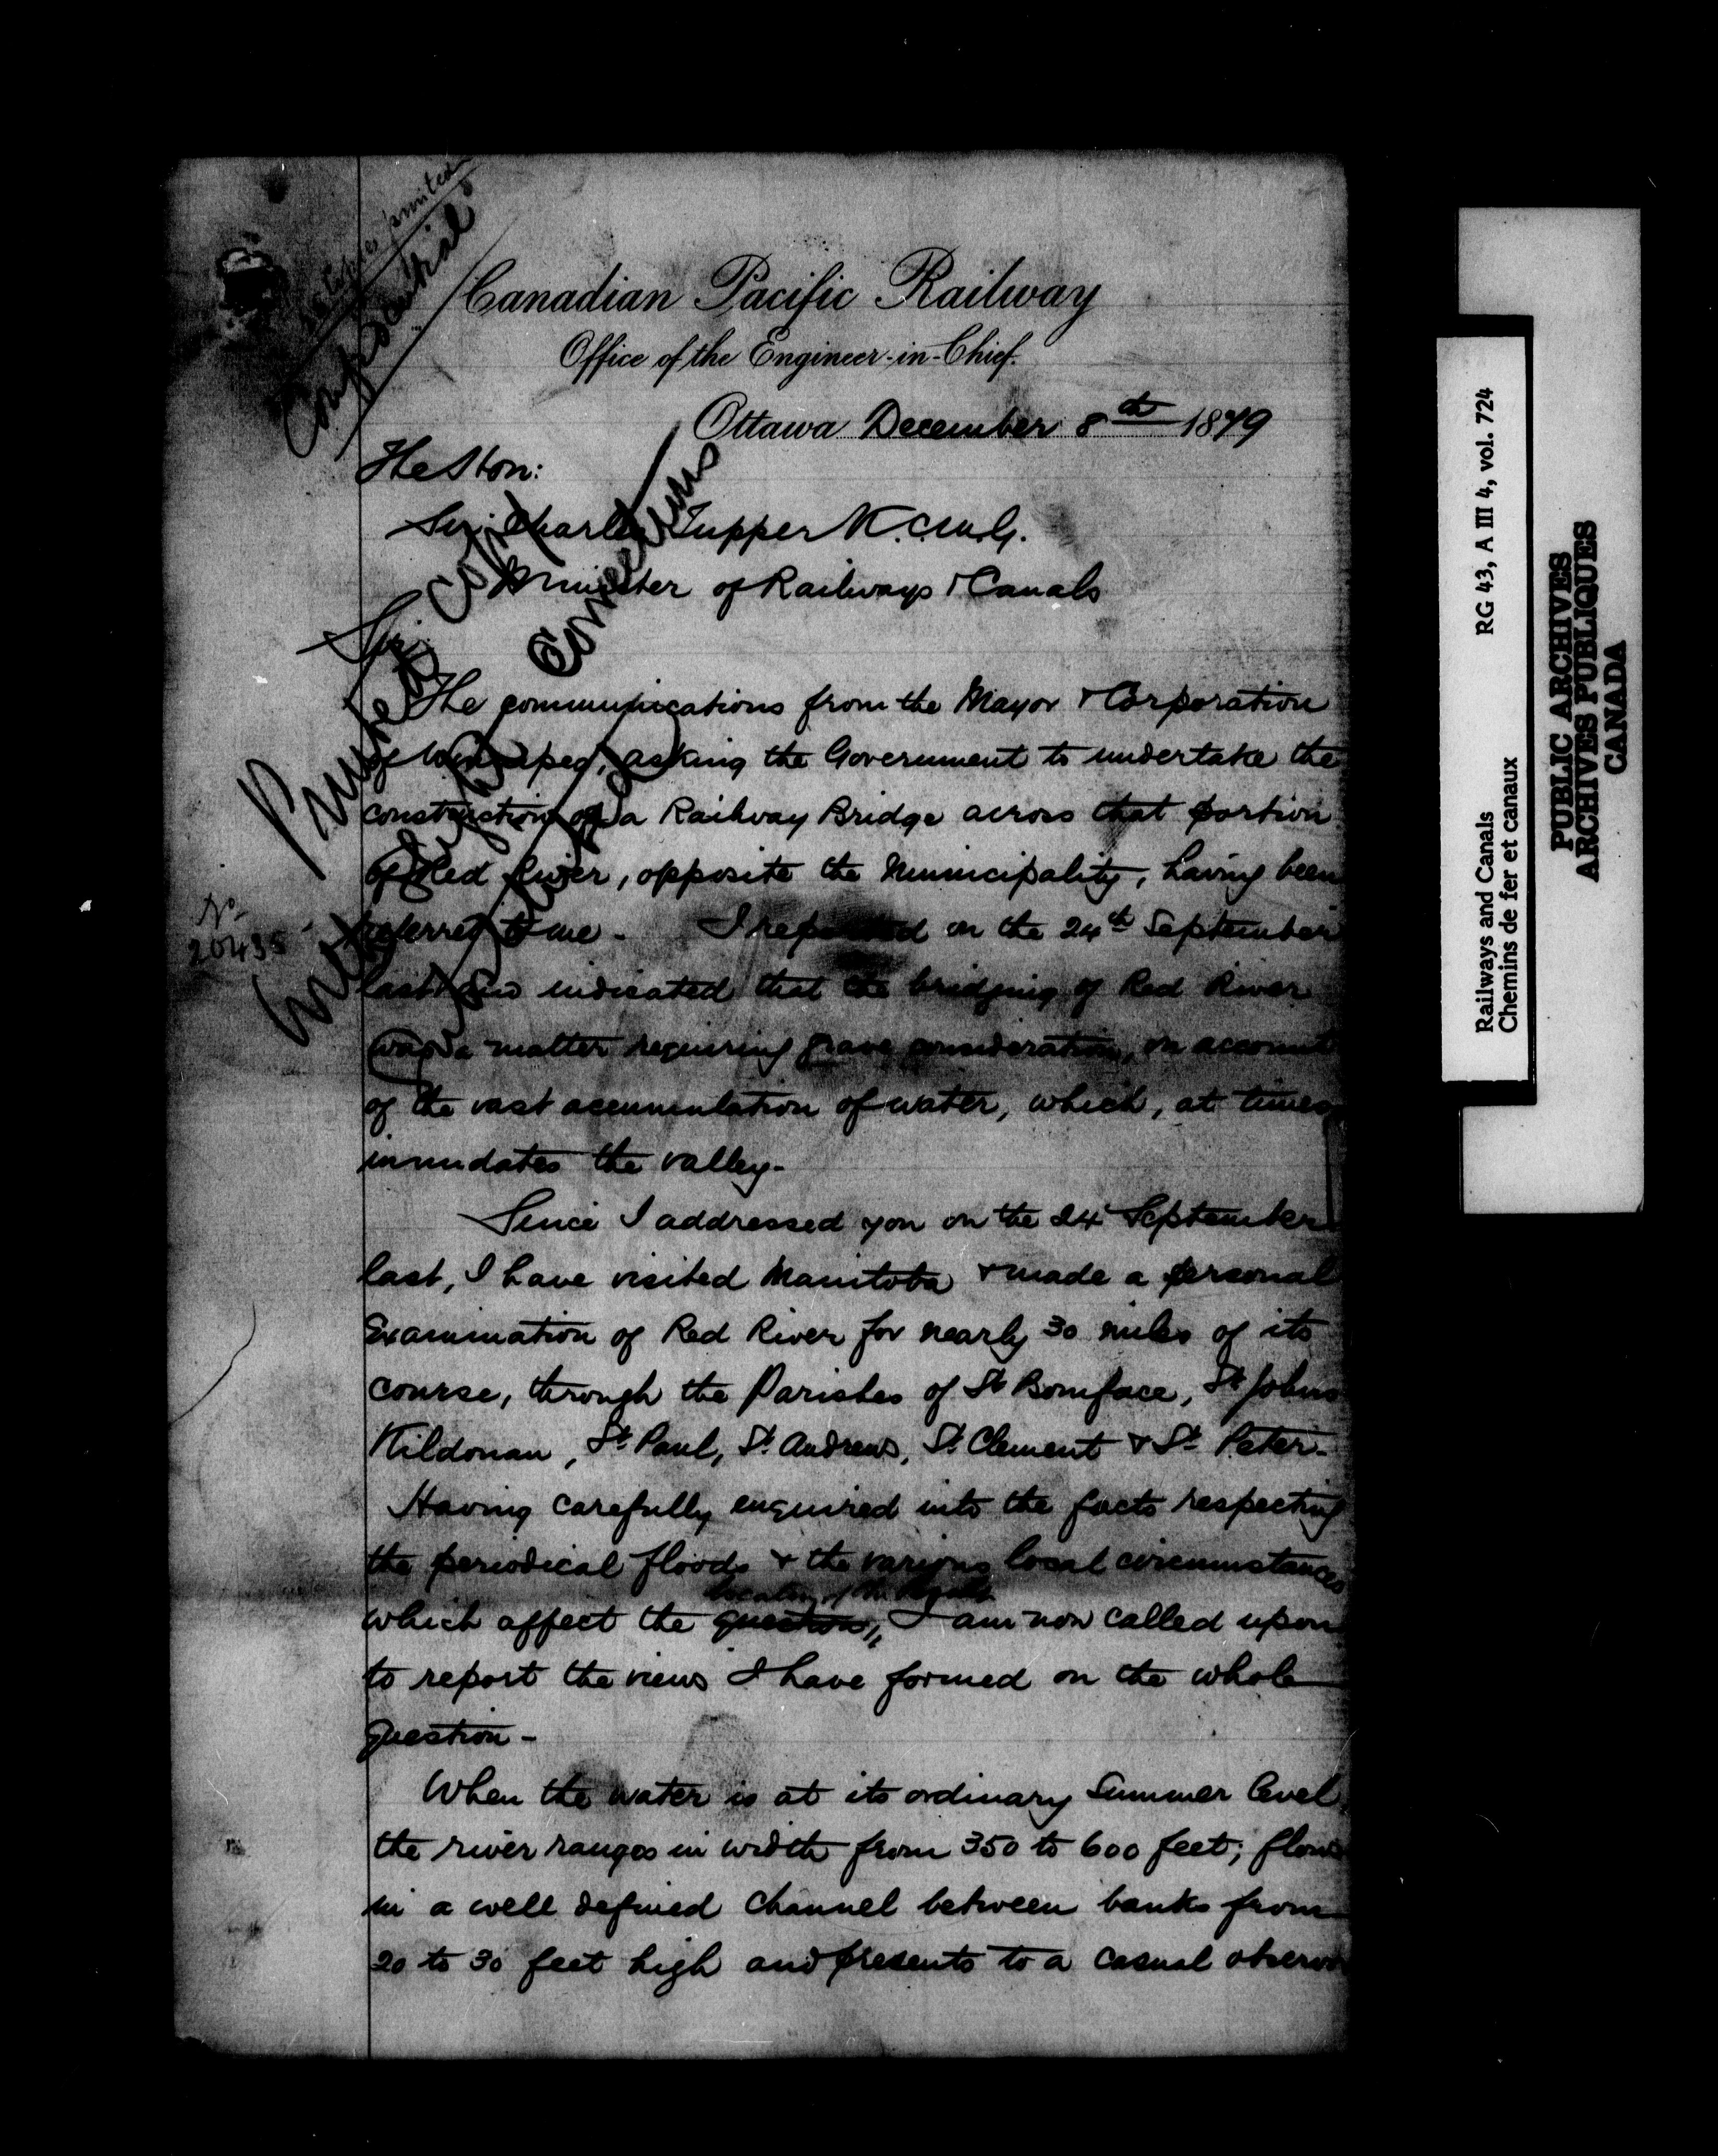 copies printed
Confidential
Canadian Pacific Railway
Office of the Engineer-in-Chief.
Ottawa December 8th 1879
The Hon:
Sir Charles Tupper K.C.M.G.
Minister of Railways & Canals
Sir,
Printed Copy
Corrections
No
20435
The communications from the Mayor & Corporation
of Winnipeg, asking the Government to undertake the
construction of a Railway Bridge across that portion
of Red River, opposite the Municipality, having been
referred to me - I reported on the 24th September
last and indicated that the bridging of Red River
was a matter requiring grave consideration, on account
of the vast accumulation of water, which, at times
inundates the valley -
Since I addressed you on the 24 September
last, I have visited Manitoba & made a personal
Examination of Red River for nearly 30 miles of its
course, through the Parishes of St Boniface, St Johns
Kildonan, St Paul, St Andrews, St Clement & St Peter -
Having carefully enquired into the facts respecting
the periodical floods & the various local circumstances
location of the
which affect the question, I am now called upon
to report the views I have formed on the whole
question -
When the water is at its ordinary Summer level,
the river ranges in width from 350 to 600 feet; flows
in a well defined channel between banks from
20 to 30 feet high and presents to a casual observer
Railways and Canals RG 43, A III 4, vol. 724
Chemins de fer et canaux
PUBLIC ARCHIVES
ARCHIVES PUBLIQUES
CANADA